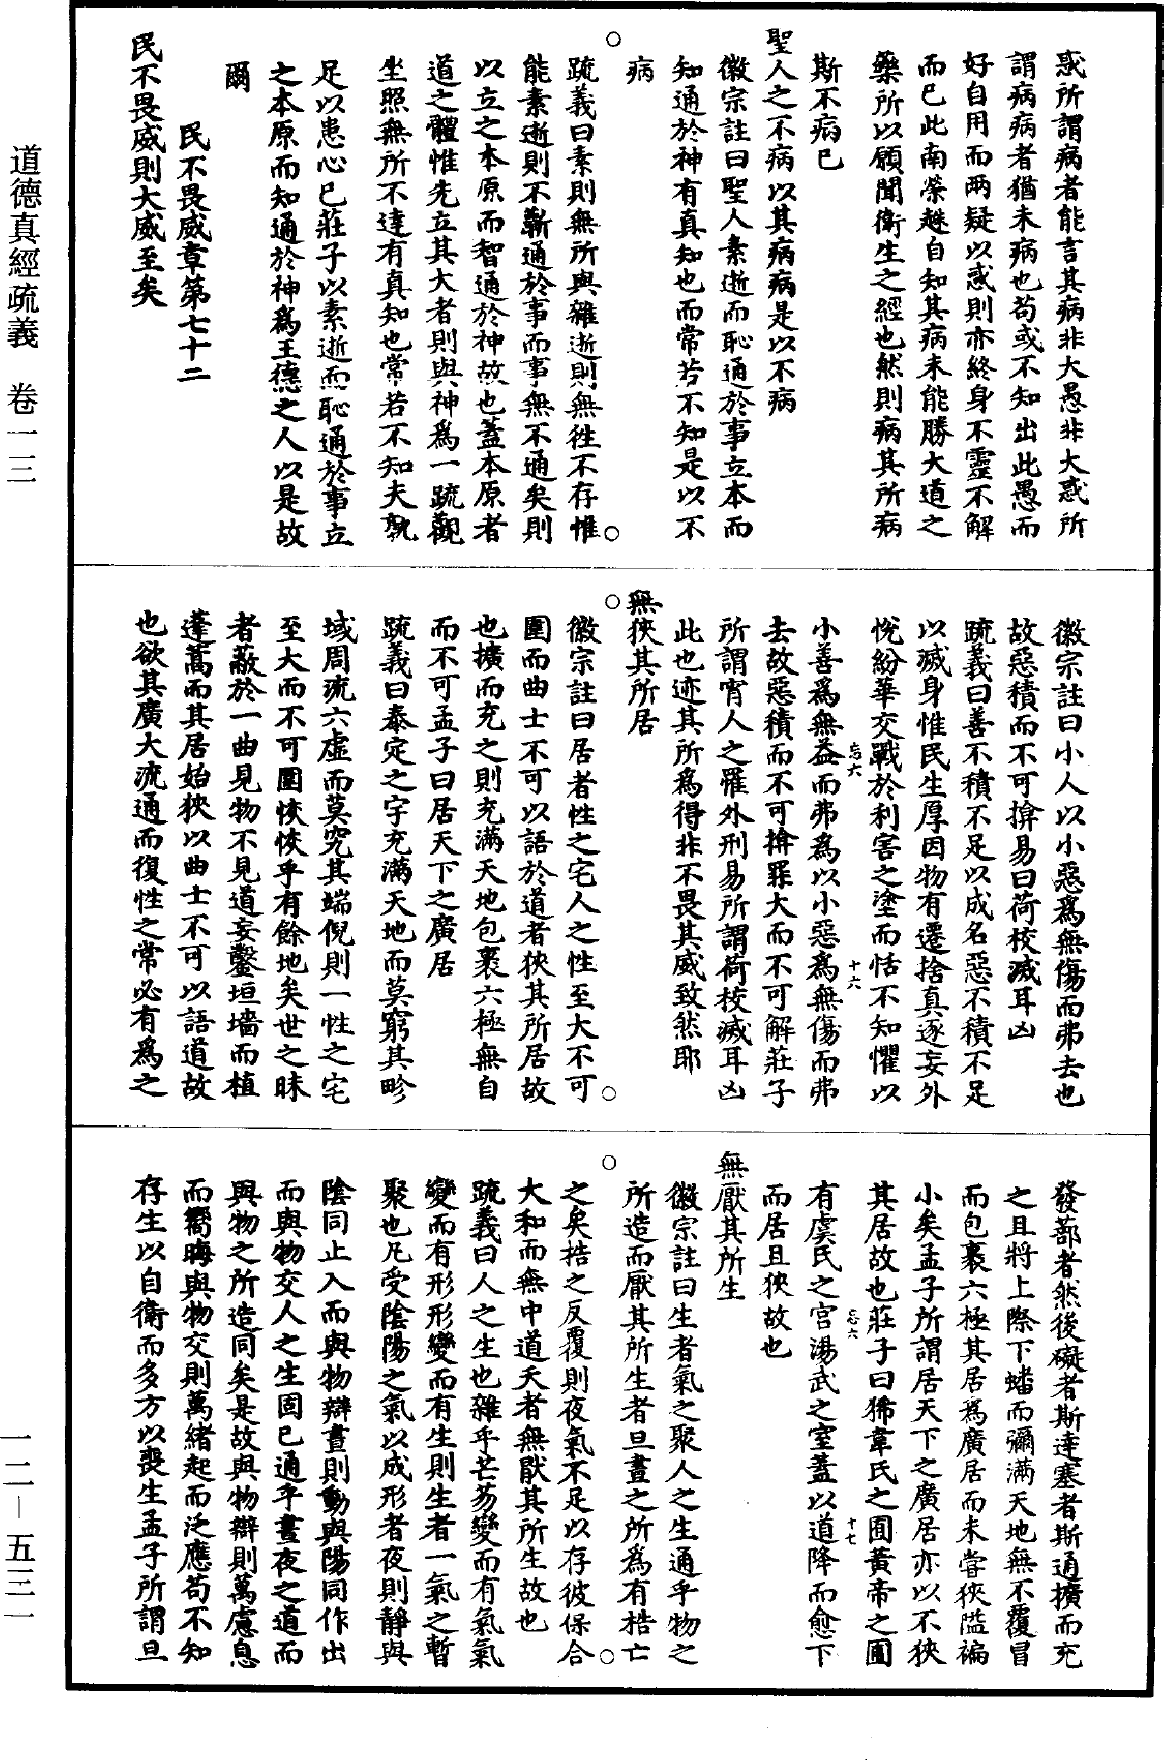 惑所謂病者能言其病非大愚非大惑所
謂病病者猶未病也苟或不知出此愚而
好自用而兩疑以惑則亦終身不靈不解
而已此南榮趎自知其病未能勝大道之
藥所以願聞衛生之經也然則病其所病
斯不病已
聖人之不病以其病病是以不病
徽宗註曰聖人素逝而恥通於事立本而
知通於神有真知也而常若不知是以不
病
疏義曰素則無所與雜逝則無往不存惟
能素逝則不蘄通於事而事無不通矣則
以立之本原而智通於神故也蓋本原者
道之體惟先立其大者則與神為一疏觀
坐照無所不達有真知也常若不知夫孰
足以患心已莊子以素逝而恥通於事立
之本原而知通於神為王德之人以是故
爾
民不畏威章第七十二
民不畏威則大威至矣
徽宗註曰小人以小惡為無傷而弗去也
故惡積而不可揜易曰荷校滅耳凶
疏義曰善不積不足以成名惡不積不足
以滅身惟民生厚因物有遷捨真逐妄外
悅紛華交戰於利害之塗而恬不知懼以
忘六
十六
小善為無益而弗為以小惡為無傷而弗
去故惡積而不可揜罪大而不可解莊子
所謂宵人之罹外刑易所謂荷校滅耳凶
此也迹其所為得非不畏其威致然耶
無狹其所居
徽宗註曰居者性之宅人之性至大不可
圍而曲士不可以語於道者狹其所居故
也擴而充之則充滿天地包裹六極無自
而不可孟子曰居天下之廣居
疏義曰泰定之宇充滿天地而莫窮其畛
域周流六虛而莫究其端倪則一性之宅
至大而不可圍恢恢乎有餘地矣世之昧
者蔽於一曲見物不見道妄鑿垣墻而植
蓬蒿而其居始狹以曲士不可以語道故
也欲其廣大流通而復性之常必有為之
發蔀者然後礙者斯達塞者斯通擴而充
之且將上際下蟠而彌滿天地無不覆冒
而包裹六極其居為廣居而未嘗狹隘褊
小矣孟子所謂居天下之廣居亦以不狹
其居故也莊子曰狶韋氏之囿黃帝之圃
忘六
十七
有虞氏之宮湯武之室蓋以道降而愈下
而居且狹故也
無厭其所生
徽宗註曰生者氣之聚人之生通乎物之
所造而厭其所生者旦晝之所為有梏亡
之矣梏之反覆則夜氣不足以存彼保合
大和而無中道夭者無厭其所生故也
疏義曰人之生也雜乎芒芴變而有氣氣
變而有形形變而有生則生者一氣之暫
聚也凡受陰陽之氣以成形者夜則靜與
陰同止入而與物辯晝則動與陽同作出
而與物交人之生固已通乎晝夜之道而
與物之所造同矣是故與物辯則萬慮息
而嚮晦與物交則萬緒起而泛應苟不知
存生以自衛而多方以喪生孟子所謂旦
道德真經疏義　卷一三
一二－五三一